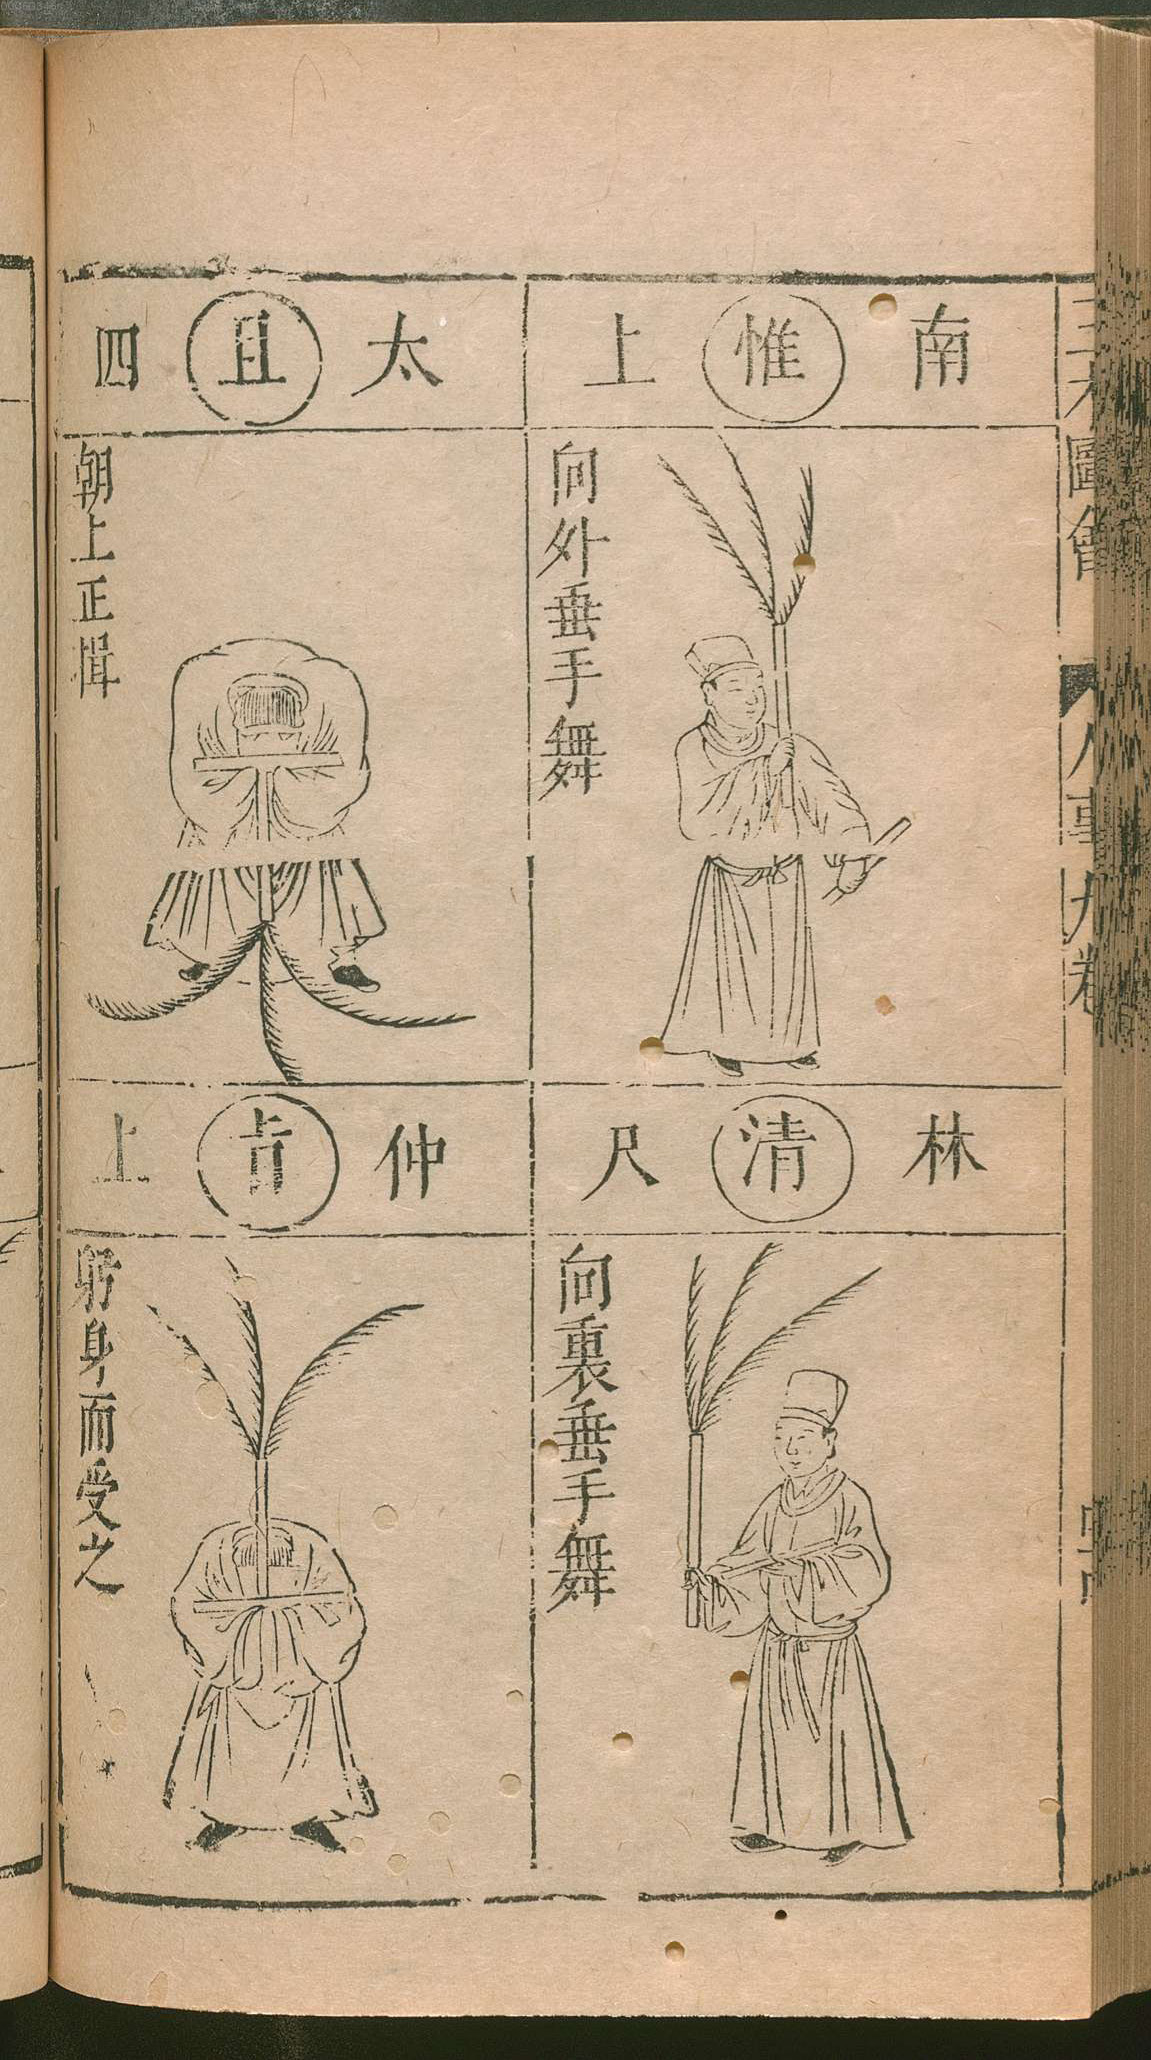 南 惟 上
向外垂手舞
林 清 尺
向裏垂手舞
太 且 四
朝上正揖
仲 㫖 上
躬身而受之
圖會
人事九卷